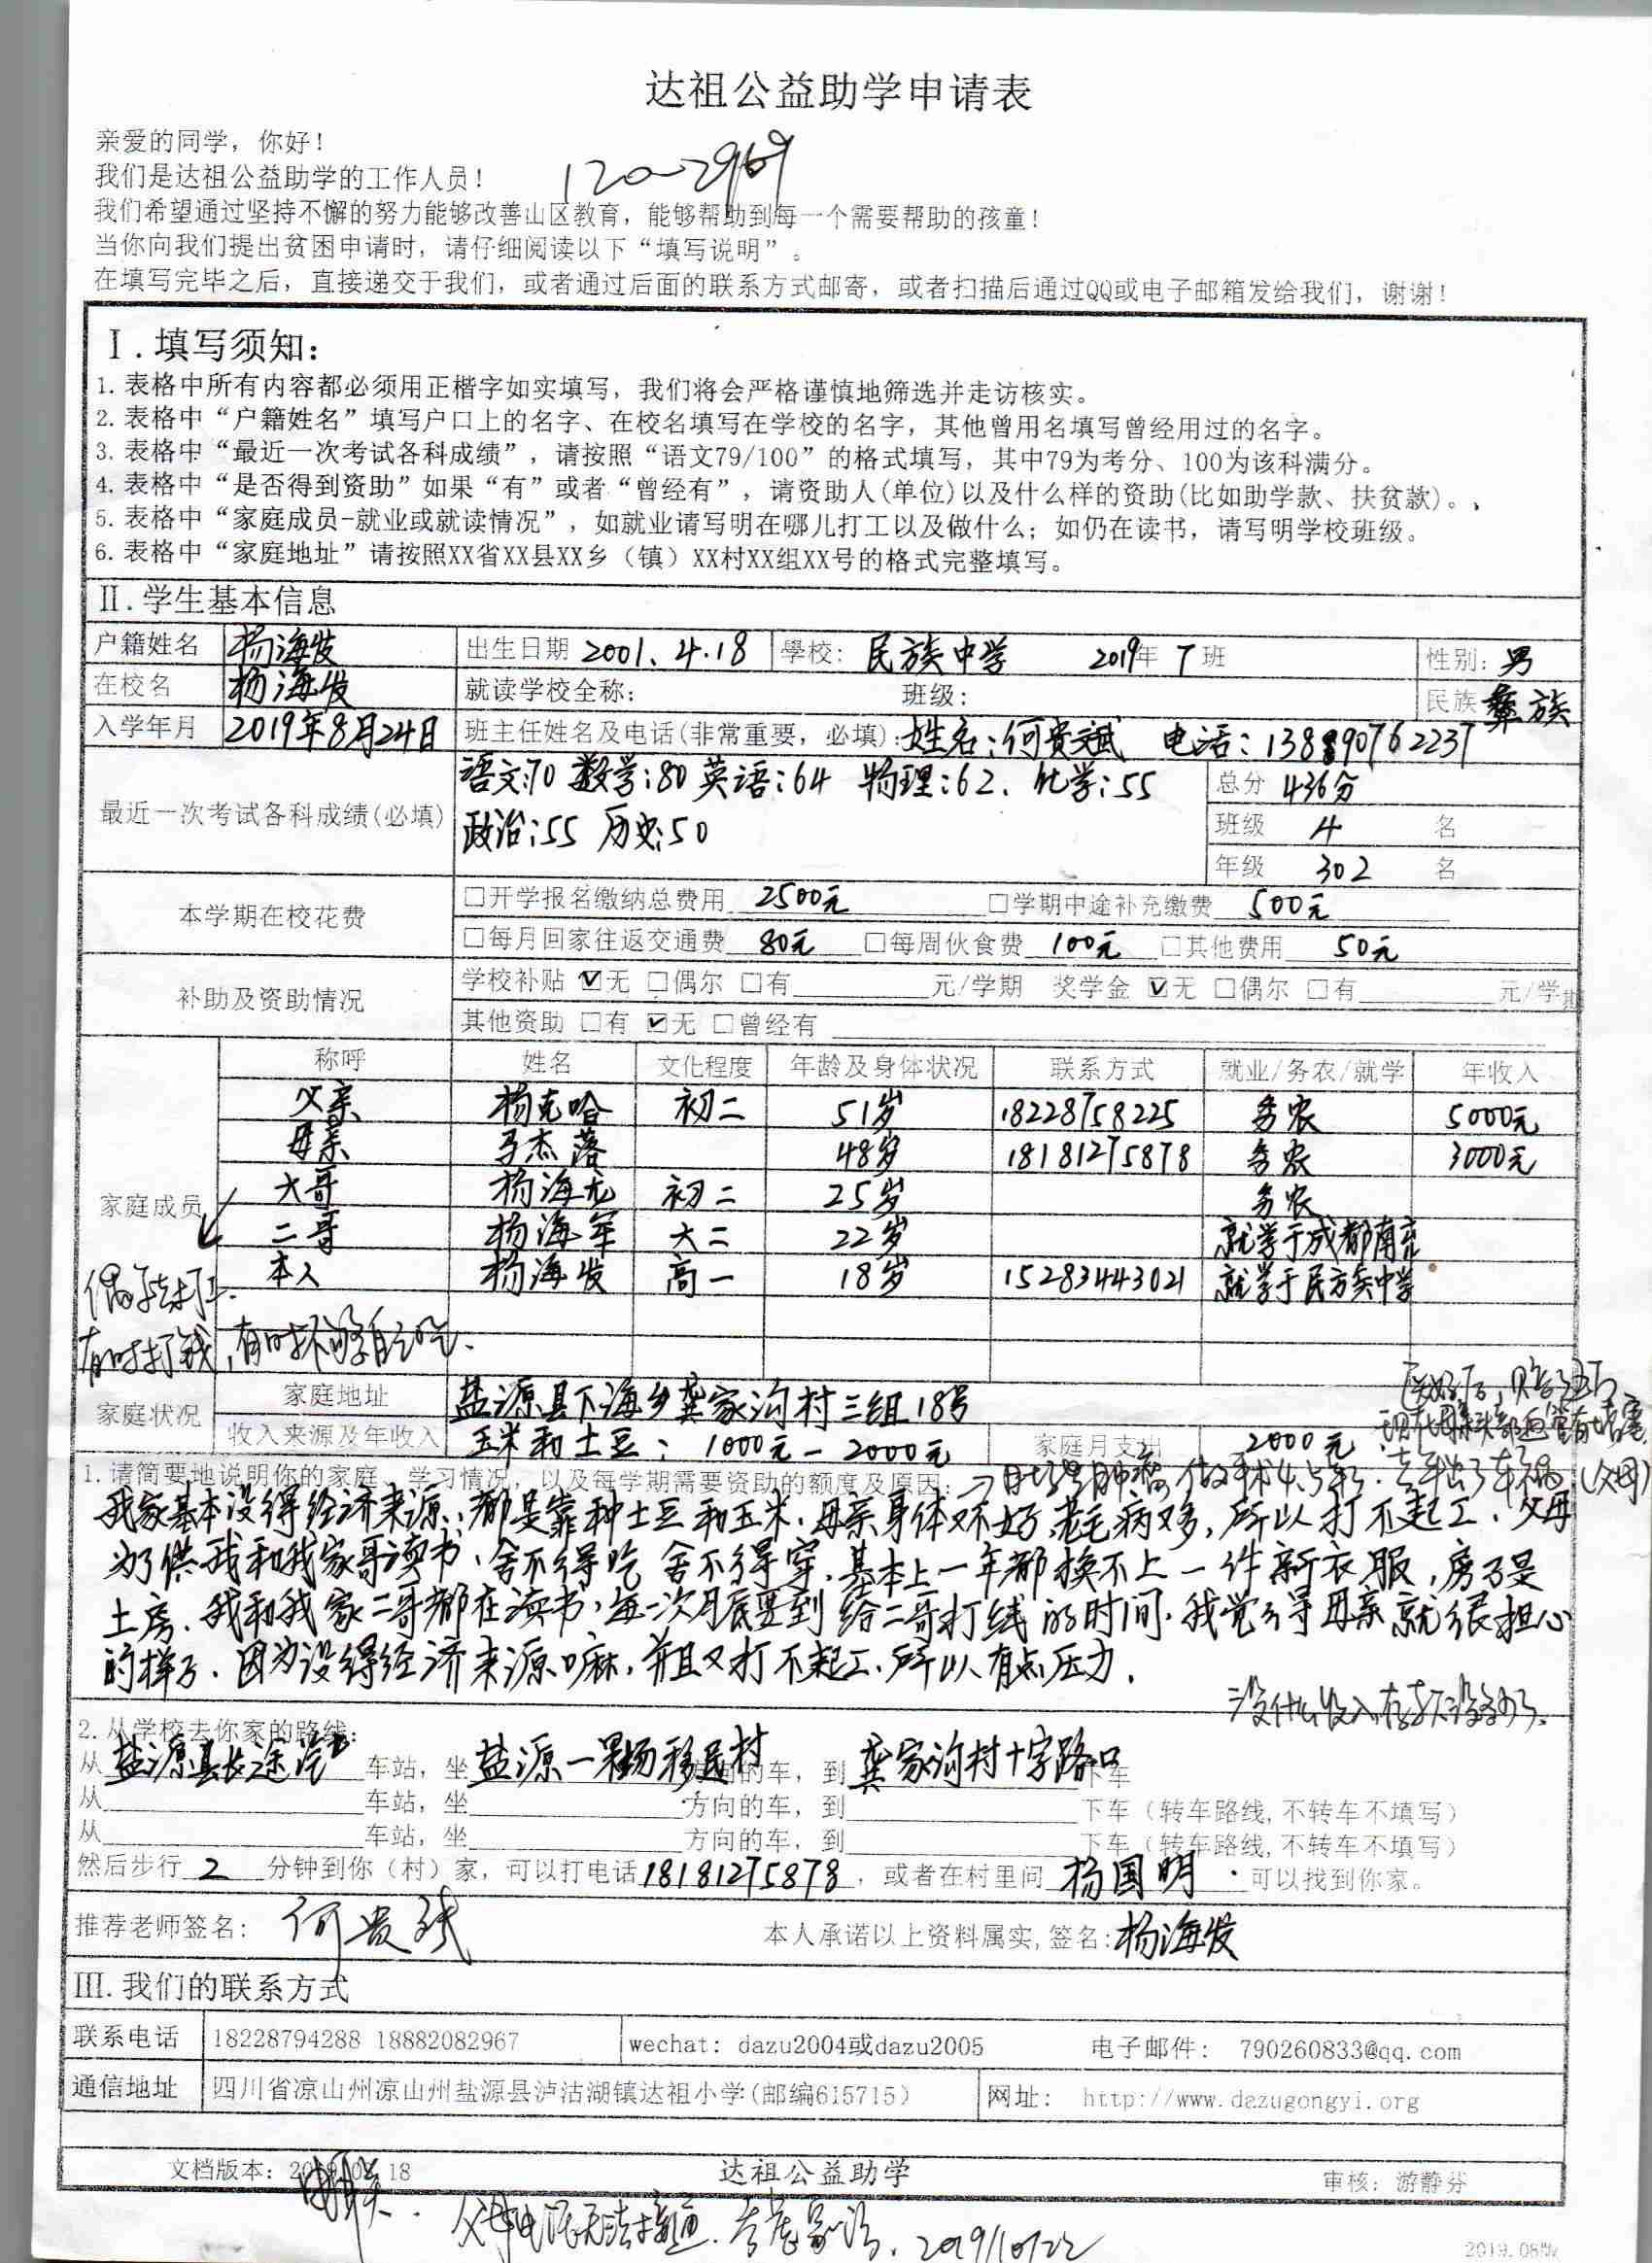 达祖公益助学申请表
亲爱的同学，你好！
我们是达祖公益助学的工作人员！
120-2969
我们希望通过坚持不懈的努力能够改善山区教育，能够帮助到每一个需要帮助的孩童！
当你向我们提出贫困申请时，请仔细阅读以下“填写说明”。
在填写完毕之后，直接递交于我们，或者通过后面的联系方式邮寄，或者扫描后通过QQ或电子邮箱发给我们，谢谢！
Ⅰ.填写须知：
1. 表格中所有内容都必须用正楷字如实填写，我们将会严格谨慎地筛选并走访核实。
2. 表格中“户籍姓名”填写户口上的名字、在校名填写在学校的名字，其他曾用名填写曾经用过的名字。
3. 表格中“最近一次考试各科成绩”，请按照“语文79/100”的格式填写，其中79为考分、100为该科满分。
4. 表格中“是否得到资助”如果“有”或者“曾经有”，请资助人(单位)以及什么样的资助(比如助学款、扶贫款)。
5. 表格中“家庭成员-就业或就读情况”，如就业请写明在哪儿打工以及做什么；如仍在读书，请写明学校班级。
6. 表格中“家庭地址”请按照XX省XX县XX乡（镇）XX村XX组XX号的格式完整填写。
Ⅱ.学生基本信息
户籍姓名 杨海发 出生日期 2001.4.18 學校：民族中学 2019年 7班 性别：男
在校名 杨海发 就读学校全称： 班级： 民族 彝族
入学年月 2019年8月24日 班主任姓名及电话(非常重要，必填)：姓名：何贵斌 电话：
最近一次考试各科成绩(必填) 语文:70 数学:80 英语:64 物理:62. 化学:55 总分 436分
政治:55 历史:50 班级 4 名
年级 302 名
本学期在校花费 □开学报名缴纳总费用 2500元 □学期中途补充缴费 500元
□每月回家往返交通费 80元 □每周伙食费 100元 □其他费用 50元
补助及资助情况 学校补贴 ☑无 □偶尔 □有 元/学期 奖学金 ☑无 □偶尔 □有 元/学期
其他资助 □有 ☑无 □曾经有
称呼 姓名 文化程度 年龄及身体状况 联系方式 就业/务农/就学 年收入
父亲 杨克哈 初二 51岁 18228758225 务农 5000元
母亲 子杰落 48岁 18181275878 务农 3000元
家庭成员 大哥 杨海龙 初二 25岁 务农
二哥 杨海军 大二 22岁 就学于成都南京
本人 杨海发 高一 18岁 15283443021 就学于民族中学
偶尔去打工.
有时打钱，有时不够自己吃.
家庭状况 家庭地址 盐源县下海乡龚家沟村三组18号
收入来源及年收入 玉米和土豆：1000元-2000元 家庭月支出 2000元
1. 请简要地说明你的家庭、学习情况，以及每学期需要资助的额度及原因：
我家基本没得经济来源，都是靠种土豆和玉米.母亲身体又不好,老毛病又多，所以打不起工.父母
为了供我和我家哥读书，舍不得吃 舍不得穿.基本上一年都换不上一件新衣服，房子是
土房.我和我家二哥都在读书，每一次月底要到给二哥打钱的时间.我觉得母亲就很担心
的样子.因为没得经济来源嘛，并且又打不起工.所以有点压力.
2.从学校去你家的路线：
从 盐源县长途汽 车站，坐 盐源一果场移民村 方向的车，到 龚家沟村十字路口 下车
从 车站，坐 方向的车，到 下车（转车路线,不转车不填写）
从 车站，坐 方向的车，到 下车（转车路线,不转车不填写）
然后步行 2 分钟到你（村）家，可以打电话 18181275878 ，或者在村里问 杨国明 可以找到你家。
推荐老师签名：何贵斌 本人承诺以上资料属实,签名：杨海发
Ⅲ.我们的联系方式
联系电话 18228794288 18882082967 wechat: dazu2004或dazu2005 电子邮件： 790260833@qq.com
通信地址 四川省凉山州凉山州盐源县泸沽湖镇达祖小学(邮编615715) 网址： http://www.dazugongyi.org
文档版本： 18 达祖公益助学 审核：游静芬
父母电话无法接通. 2019/10/22
2019.08版